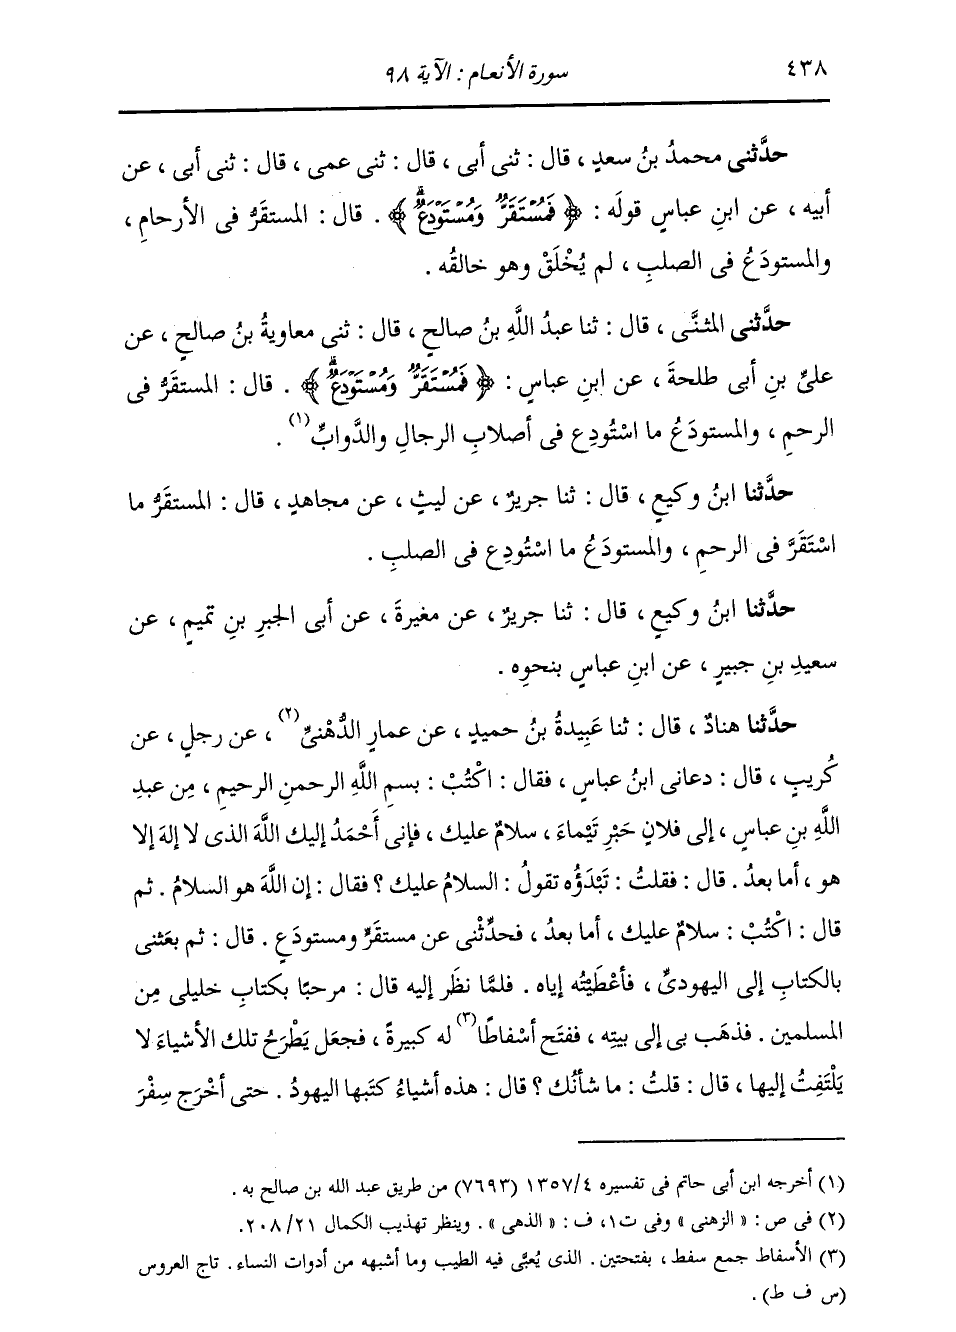 ٤٣٨
سورة الأنعام : الآية ٩٨
حدَّثنى محمدُ بنُ سعدٍ ، قال : ثنى أبى ، قال : ثنى عمى ، قال : ثنى أبى ، عن
أبيه ، عن ابنِ عباسٍ قولَه : ﴿ فَمُسْتَقَرٌّ وَمُسْتَوْدَعٌ ﴾ . قال : المستقَرُّ فى الأرحامِ ،
والمستودَعُ فى الصلبِ ، لم يُخْلَقْ وهو خالقُه .
حدَّثنى المثنَّى ، قال : ثنا عبدُ اللَّهِ بنُ صالحٍ ، قال : ثنى معاويةُ بنُ صالحٍ ، عن
علىِّ بنِ أبى طلحةَ ، عن ابنِ عباسٍ : ﴿ فَمُسْتَقَرٌّ وَمُسْتَوْدَعٌ ﴾ . قال : المستقَرُّ فى
الرحمِ ، والمستودَعُ ما اسْتُودِع فى أصلابِ الرجالِ والدَّوابِّ(١) .
حدَّثنا ابنُ وكيعٍ ، قال : ثنا جريرٌ ، عن ليثٍ ، عن مجاهدٍ ، قال : المستقَرُّ ما
اسْتَقَرَّ فى الرحمِ ، والمستودَعُ ما اسْتُودِع فى الصلبِ .
حدَّثنا ابنُ وكيعٍ ، قال : ثنا جريرٌ ، عن مغيرةَ ، عن أبى الجبرِ بنِ تميمٍ ، عن
سعيدِ بنِ جبيرٍ ، عن ابنِ عباسٍ بنحوِه .
حدَّثنا هنادٌ ، قال : ثنا عَبِيدةُ بنُ حميدٍ ، عن عمارٍ الدُّهْنىِّ(٢) ، عن رجلٍ ، عن
كُريبٍ ، قال : دعانى ابنُ عباسٍ ، فقال : اكْتُبْ : بسمِ اللَّهِ الرحمنِ الرحيمِ ، مِن عبدِ
اللَّهِ بنِ عباسٍ ، إلى فلانٍ حَبْرِ تَيْماءَ ، سلامٌ عليك ، فإنى أَحْمَدُ إليك اللَّهَ الذى لا إلهَ إلا
هو ، أما بعدُ . قال : فقلتُ : تَبْدَؤُه تقولُ : السلامُ عليك ؟ فقال : إن اللَّهَ هو السلامُ . ثم
قال : اكْتُبْ : سلامٌ عليك ، أما بعدُ ، فحدِّثْنى عن مستقَرٍّ ومستودَعٍ . قال : ثم بعَثنى
بالكتابِ إلى اليهودىِّ ، فأعْطَيْتُه إياه . فلمَّا نظَر إليه قال : مرحبًا بكتابِ خليلى مِن
المسلمين . فذهَب بى إلى بيتِه ، ففتَح أسْفاطًا(٣) له كبيرةً ، فجعَل يَطْرَحُ تلك الأشياءَ لا
يَلْتَفِتُ إليها ، قال : قلتُ : ما شأنُك ؟ قال : هذه أشياءُ كتَبها اليهودُ . حتى أخْرَج سِفْرَ
(١) أخرجه ابن أبى حاتم فى تفسيره ١٣٥٧/٤ (٧٦٩٣) من طريق عبد الله بن صالح به .
(٢) فى ص : « الزهنى » وفى ت١، ف : « الذهى » . وينظر تهذيب الكمال ٢٠٨/٢١.
(٣) الأسفاط جمع سفط ، بفتحتين . الذى يُعبَّى فيه الطيب وما أشبهه من أدوات النساء . تاج العروس
(س ف ط) .